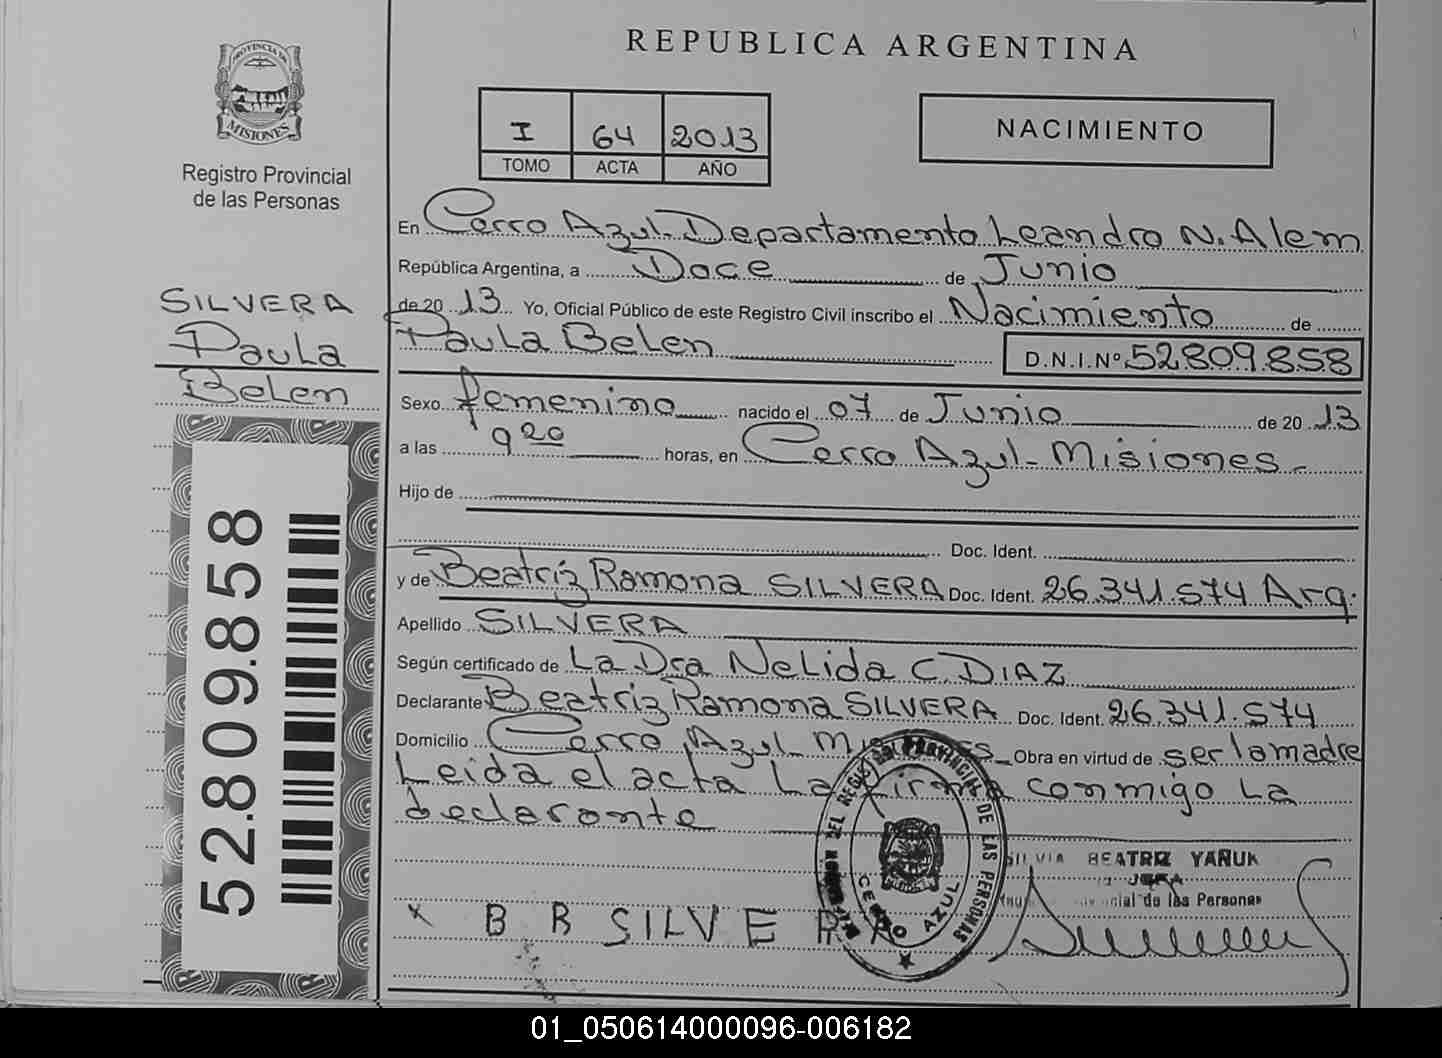 REPUBLICA ARGENTINA
PROVINCIA DE
MISIONES
Registro Provincial
de las Personas
I 64 2013
TOMO ACTA AÑO
NACIMIENTO
SILVERA
Paula
Belen
52.809.858
En Cerro Azul-Departamento Leandro N. Alem
República Argentina, a Doce de Junio
de 20 13 Yo, Oficial Público de este Registro Civil inscribo el Nacimiento de
Paula Belen D.N.I.Nº 52.809.858
Sexo femenino nacido el 07 de Junio de 20 13
a las 9 20 horas, en Cerro Azul- Misiones-
Hijo de
Doc. Ident.
y de Beatriz Ramona SILVERA Doc. Ident. 26.341.574 Arg.
Apellido SILVERA
Según certificado de La Dra Nelida C. DIAZ
Declarante Beatriz Ramona SILVERA Doc. Ident. 26.341.574
Domicilio Cerro Azul Misiones Obra en virtud de ser la madre
Leida el acta La firma conmigo La
declarante
SILVIA BEATRIZ YAÑUK
JEFA
de las Personas
x B R SILVERA
PROVINCIAL DE LAS PERSONAS
CERRO AZUL
01_050614000096-006182